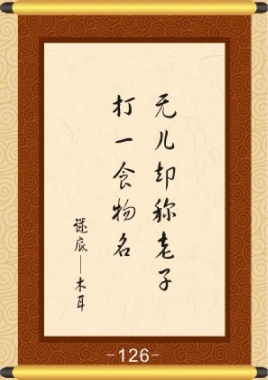 无儿却称老子
打一食物名
谜底——木耳
-126-